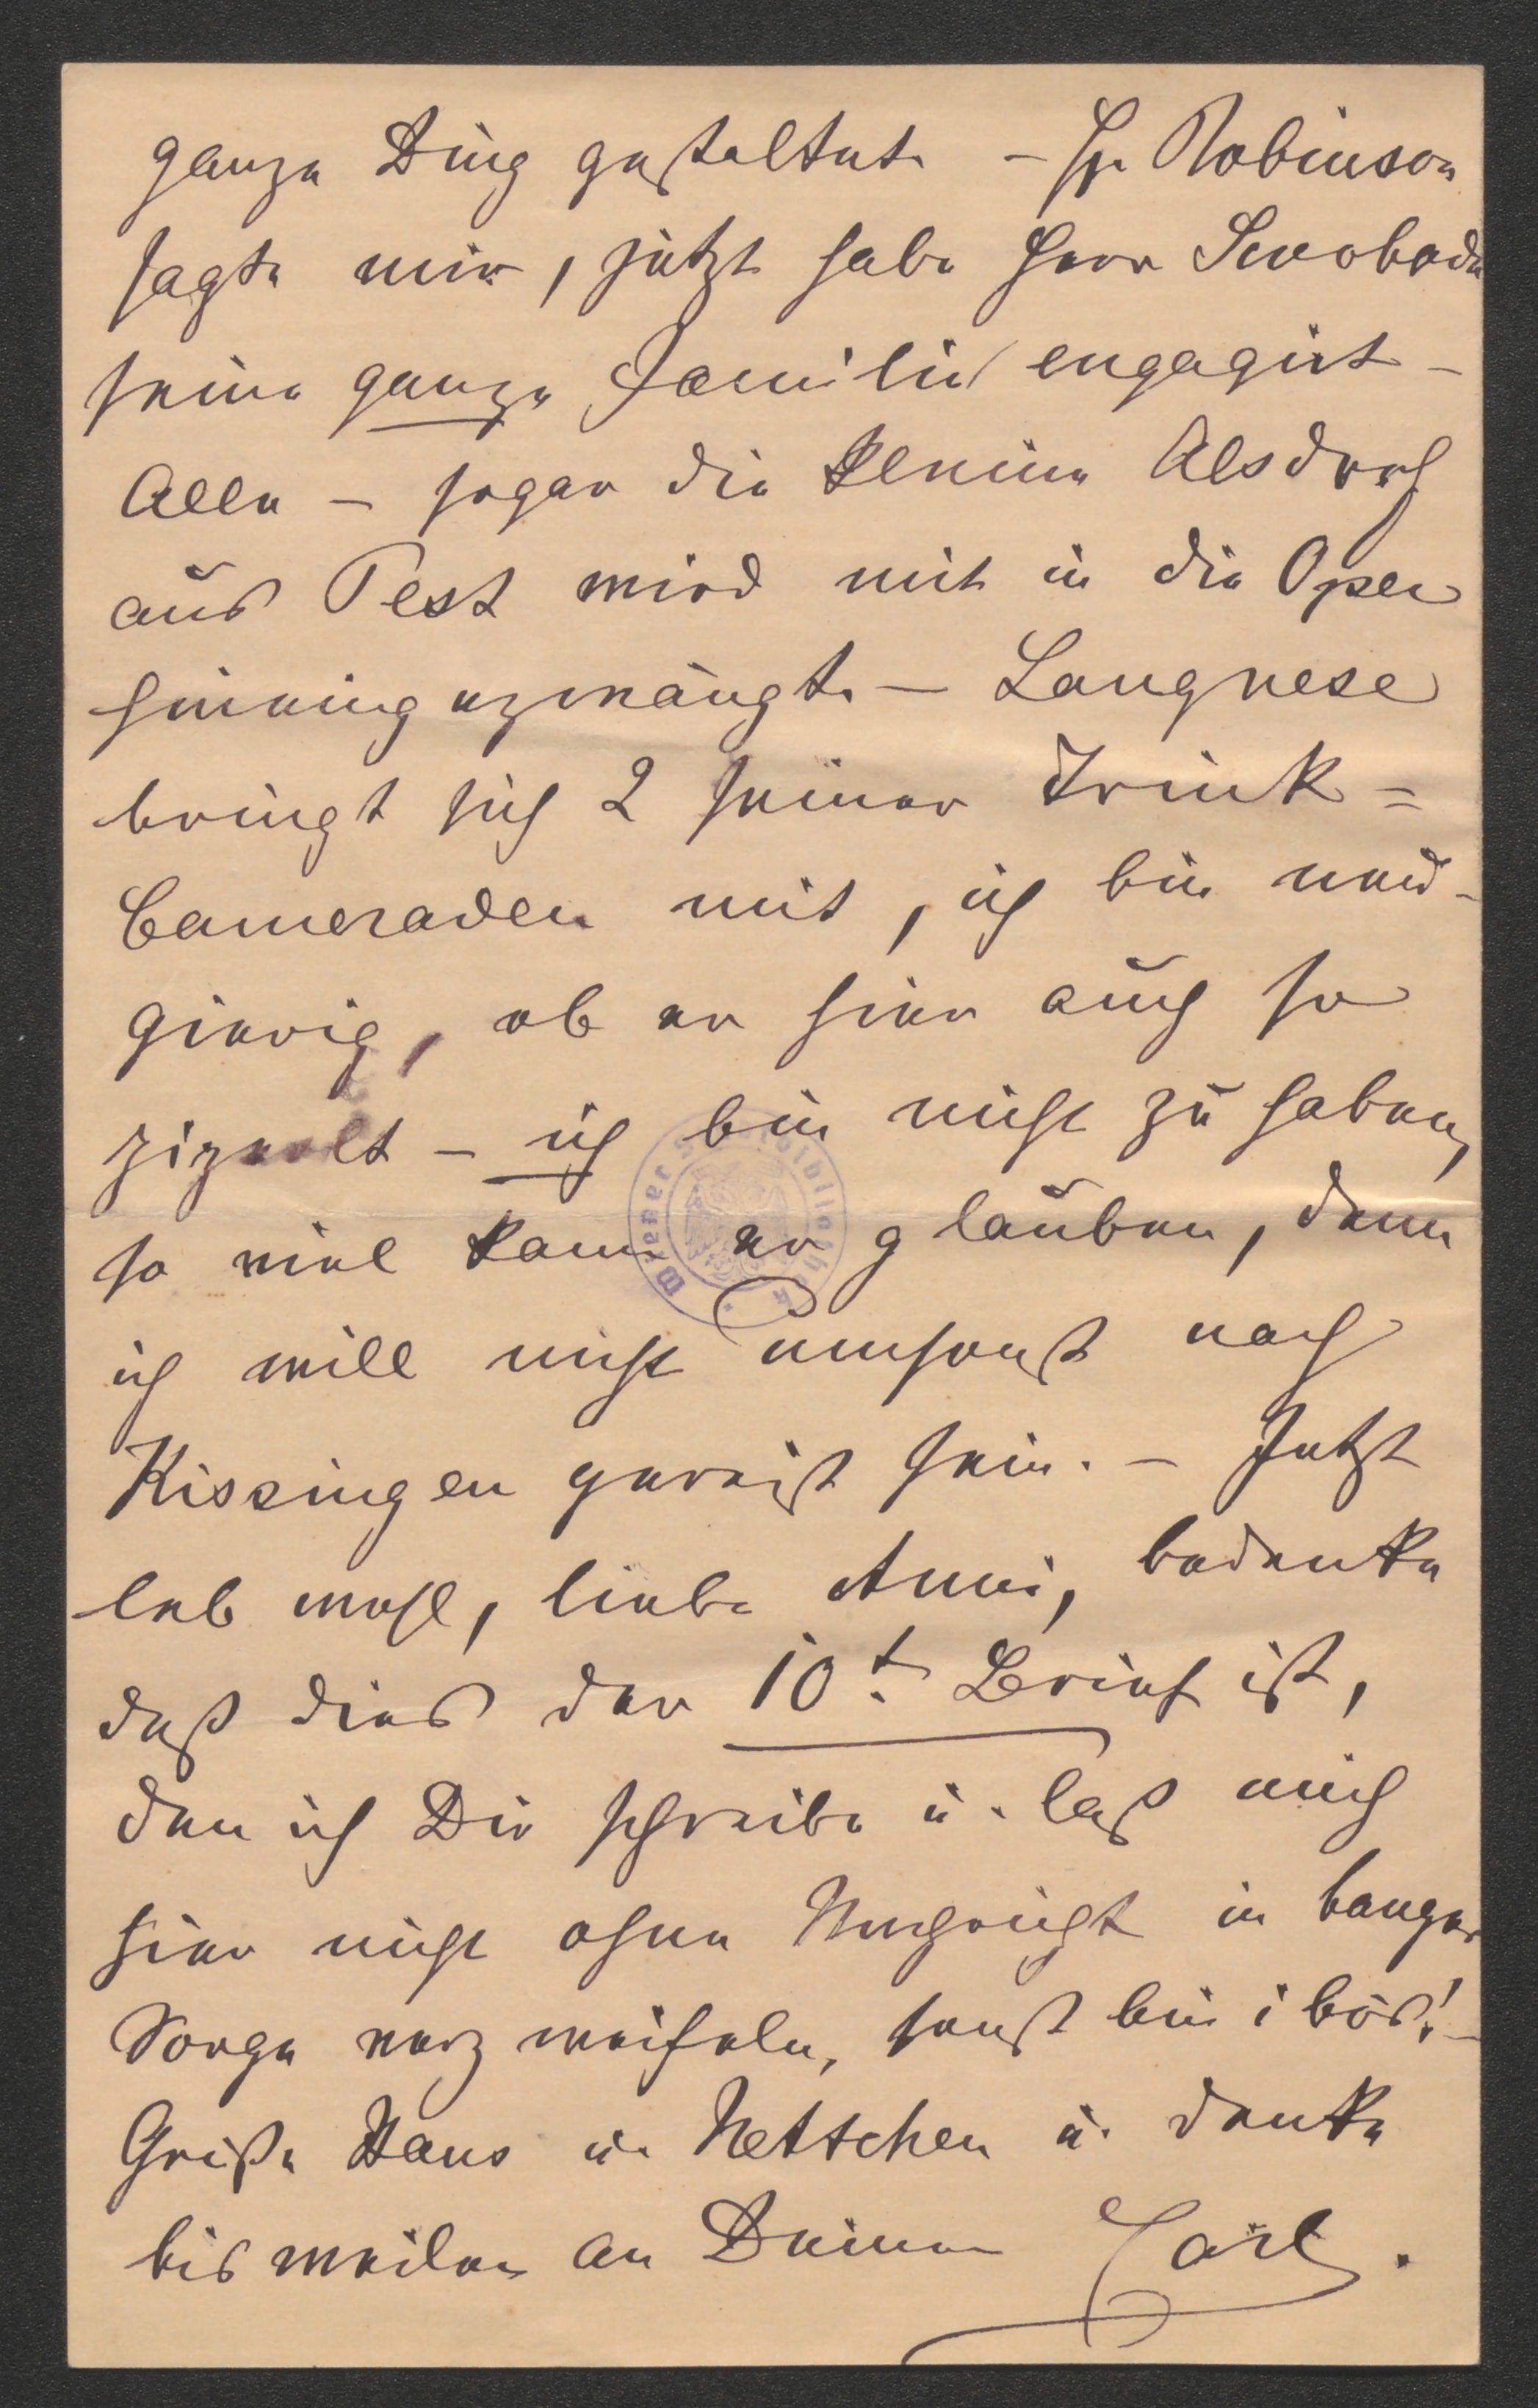 ganze Ding gestaltet. – Hr. Robinson
sagte mir, jetzt habe Herr Swoboda
seine ganze Familie engagirt –
Alle – sogar die kleine Alsdorf
aus Pest wird mit in die Oper
hineingezwängt. – Langnese
bringt sich 2 seiner Trink=
Cameraden mit, ich bin neu-
gierig, ob er hier auch so
– ich bin nicht zu haben,
so viel kann er glauben, denn
ich will nicht umsonst nach
Kissingen gereist sein. – Jetzt
leb wohl, liebe Anni, bedenke
daß dies der 10t. Brief ist,
den ich Dir schreibe u. laß mich
hier nicht ohne Nachricht in banger
Sorge verzweifeln, sonst bin i bös! –
Grüße Hans u. Nettchen u. denke
bisweilen an Deinen Carl.
Wiener Stadtbibliothek